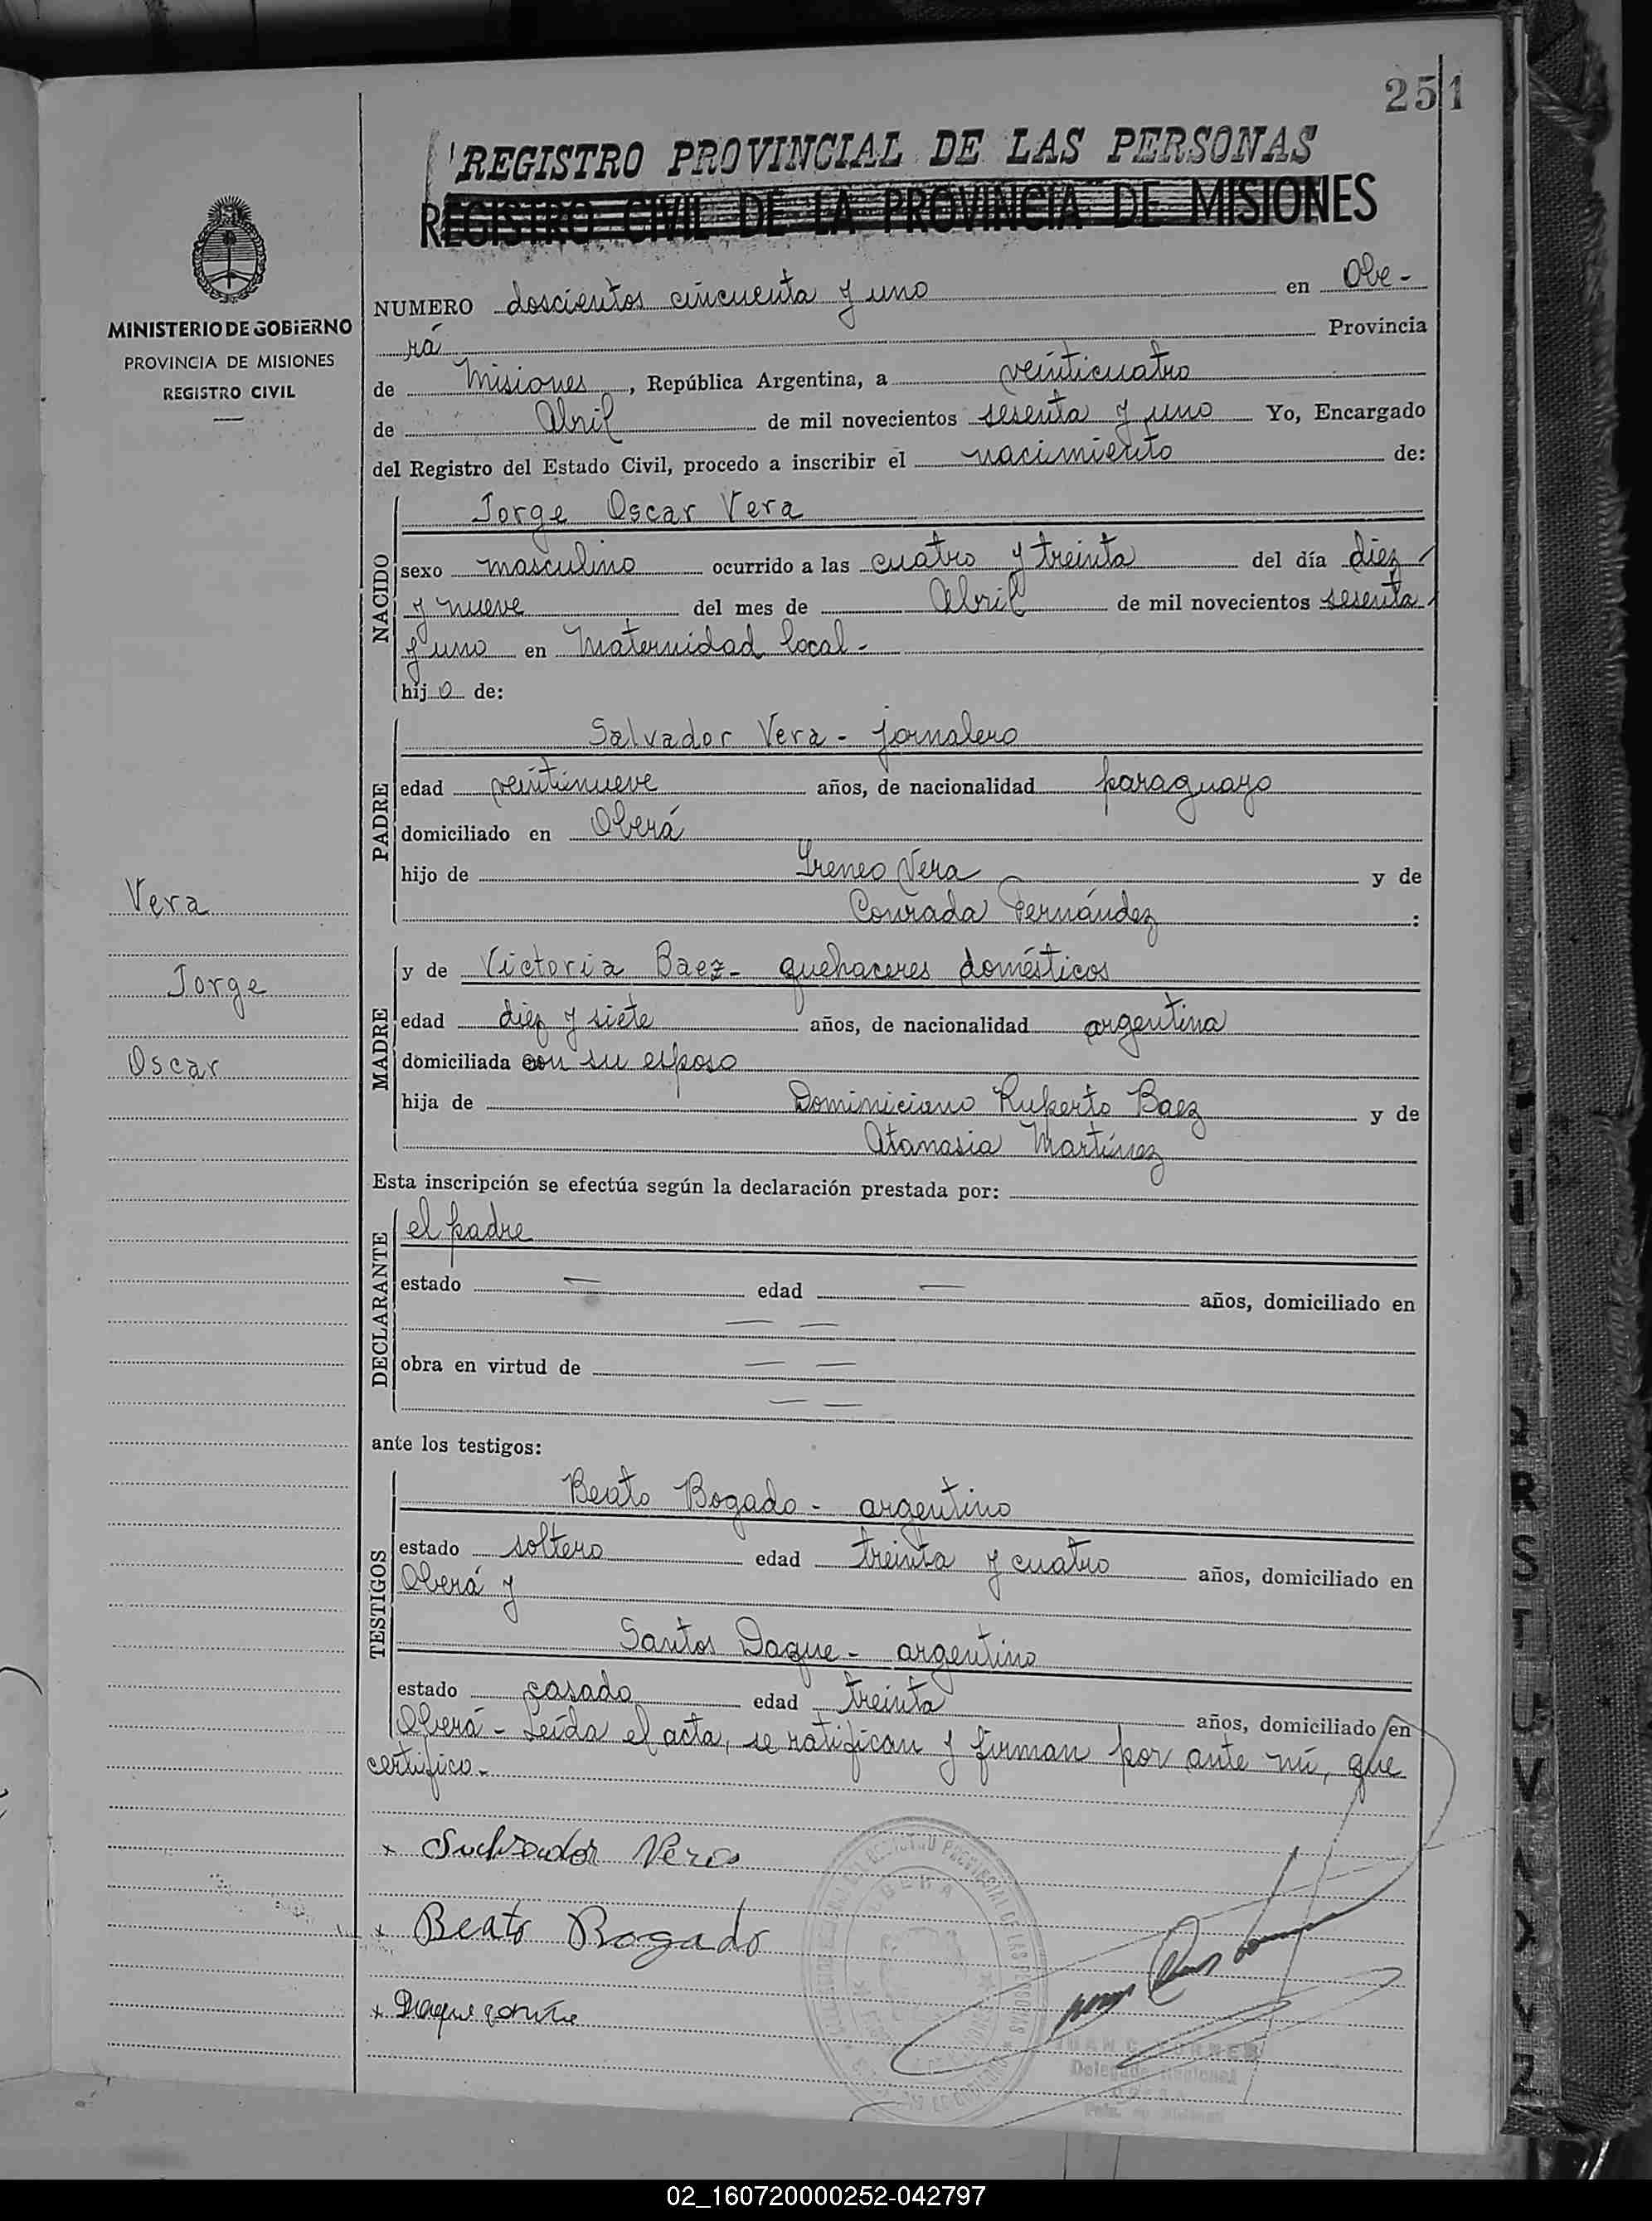 251
REGISTRO PROVINCIAL DE LAS PERSONAS
REGISTRO CIVIL DE LA PROVINCIA DE MISIONES
MINISTERIO DE GOBIERNO
PROVINCIA DE MISIONES
REGISTRO CIVIL
NUMERO doscientos cincuenta y uno en Obe-
rá Provincia
de Misiones, República Argentina, a veinticuatro
de Abril de mil novecientos sesenta y uno Yo, Encargado
del Registro del Estado Civil, procedo a inscribir el nacimiento de:
NACIDO
Jorge Oscar Vera
sexo masculino ocurrido a las cuatro y treinta del día diez
y nueve del mes de Abril de mil novecientos sesenta
y uno en Maternidad local-
hijo de:
PADRE
Salvador Vera - jornalero
edad veintinueve años, de nacionalidad paraguayo
domiciliado en Oberá
hijo de Ireneo Vera y de
Conrada Fernández:
Vera
Jorge
Oscar
MADRE
y de Victoria Baez- quehaceres domésticos
edad diez y siete años, de nacionalidad argentina
domiciliada con su esposo
hija de Dominiciano Ruperto Baez y de
Atanasia Martínez
Esta inscripción se efectúa según la declaración prestada por:
DECLARANTE
el padre
estado — edad — años, domiciliado en
— —
obra en virtud de — —
— —
ante los testigos:
TESTIGOS
Beato Bogado - argentino
estado soltero edad treinta y cuatro años, domiciliado en
Oberá y
Santos Daque - argentino
estado casado edad treinta años, domiciliado en
Oberá - Leída el acta, se ratifican y firman por ante mí, que
certifico.-
x Salvador Vera
x Beato Bogado
x Daque
REGISTRO PROVINCIAL DE LAS PERSONAS
OBERA
Delegado Regional
R
S
T
U
V
Y
Z
02_160720000252-042797